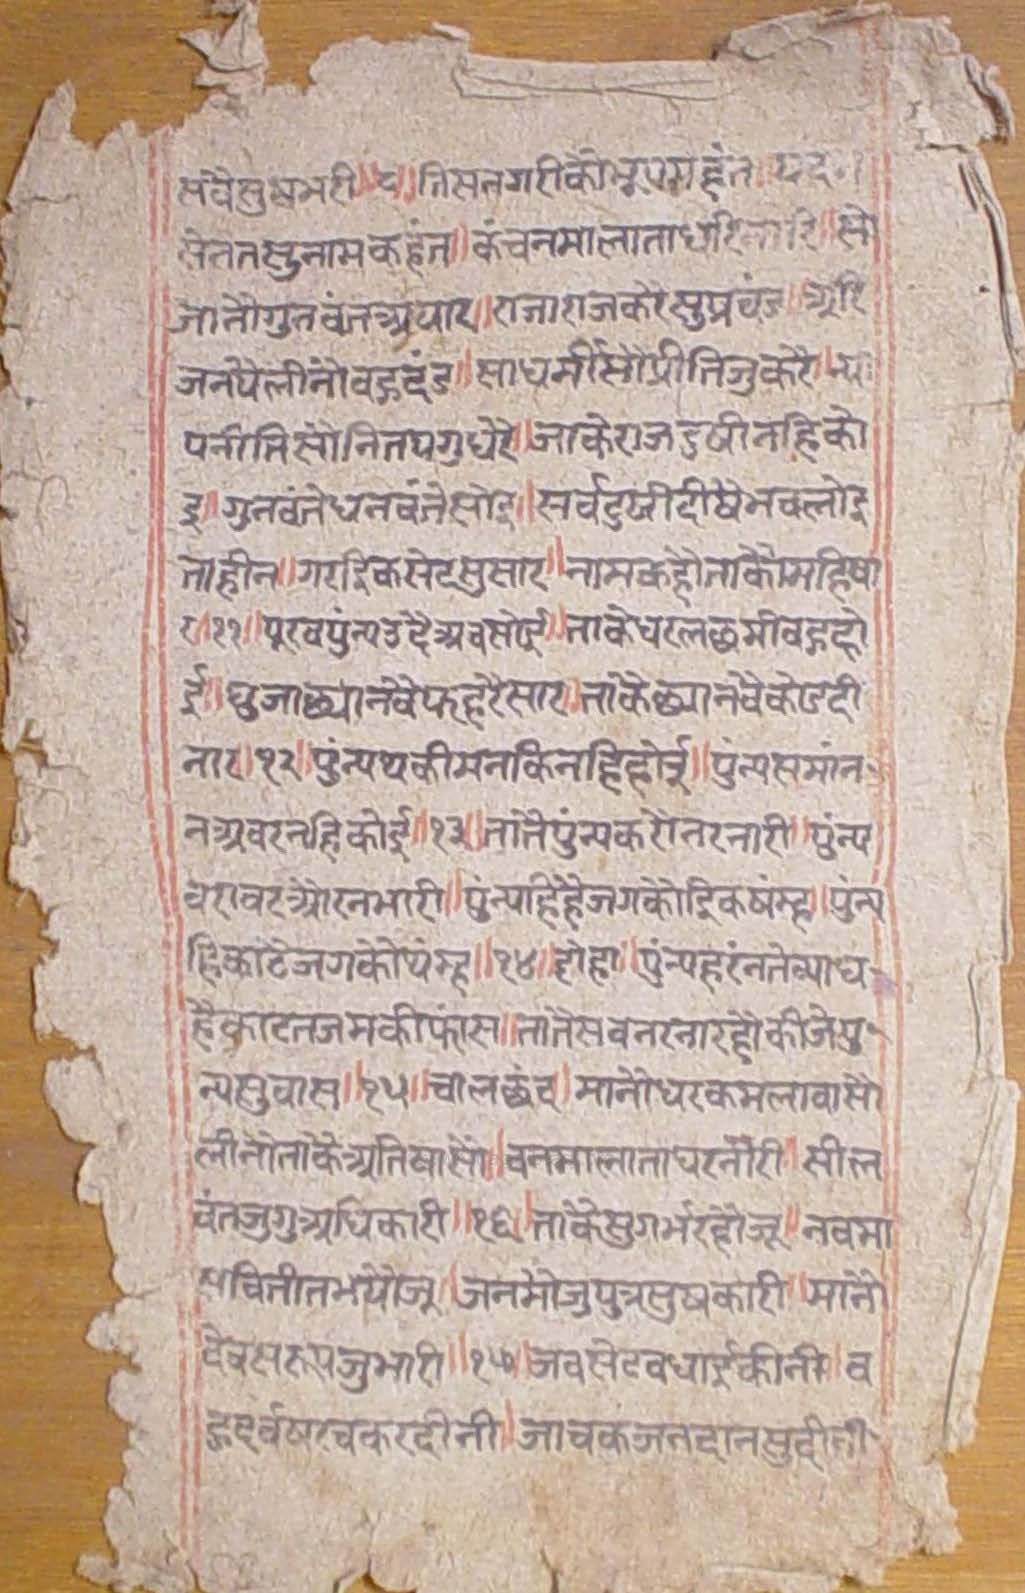 सवैसुषभरी॥८॥तिसनगरीकौभूपमहंत॥पद॰।
सेनतसुनामकहंत॥कंचनमालाताघरिनारि॥सो
जानौगुनवंतअपार॥राजाराजकरैसुप्रचंड॥अरि
जनपैलीनौवहुदंड॥साधर्मीसौप्रीतिजुकरै॥न्या
पनीतिसौनितपगुधरै॥जाकेराजदुषीनहिको
इ॥गुनवंतेधनवंतेसोइ॥सर्वदुखीदीषैभवलोइ
ताहीन॥गरदिकसेटसुसार॥नामकहौताकौमहिषा
र॥११॥पूरवपुंन्यउदैअवसोई॥ताकेघरलछमीवहुहो
ई॥धुजाछ्यानवैफहरैसार॥ताकेछ्यानवैकोटदी
नार॥१२॥पुंन्यथकीमनकिनहिहोई॥पुंन्यसमांन
नअवरनहिकोई॥१३॥तातैपुंन्यकरोनरनारी॥पुंन्य
वरावरऔरनभारी॥पुंन्यहिहैजगकौदिकषंम्ह॥पुंन्य
हिकाटेजगकोपंम्ह॥१४॥दोहा॥पुंन्यहरंनतेव्याध
हैकाटतजमकीफांस॥तातैसवनरनारहौकीजेपु
न्यसुवास॥१५॥चालछंद॥मानौघरकमलावासौ
लीनोताकेअतिषासौ॥वनमालाताघरनारी॥सील
वंतजुगुअधिकारी॥१६॥ताकैसुगर्भरहौजू॥नवमा
सवितीतभयौजू॥जनमौजुपुत्रसुषकारी॥मानौ
देवसरूपजुभारी॥१७॥जवसेटवधाईकीनी॥व
हुदर्वषरचकरदीनी॥जाचकजनदानसुदीनी